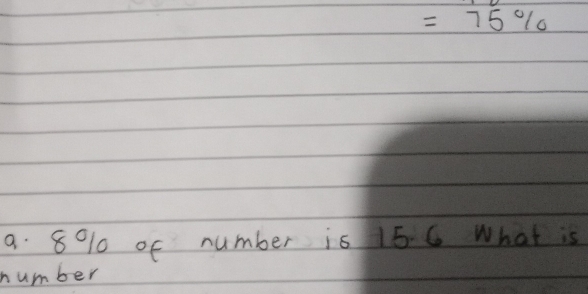 = 75%
a. 8% of number is 15.6 What is
number